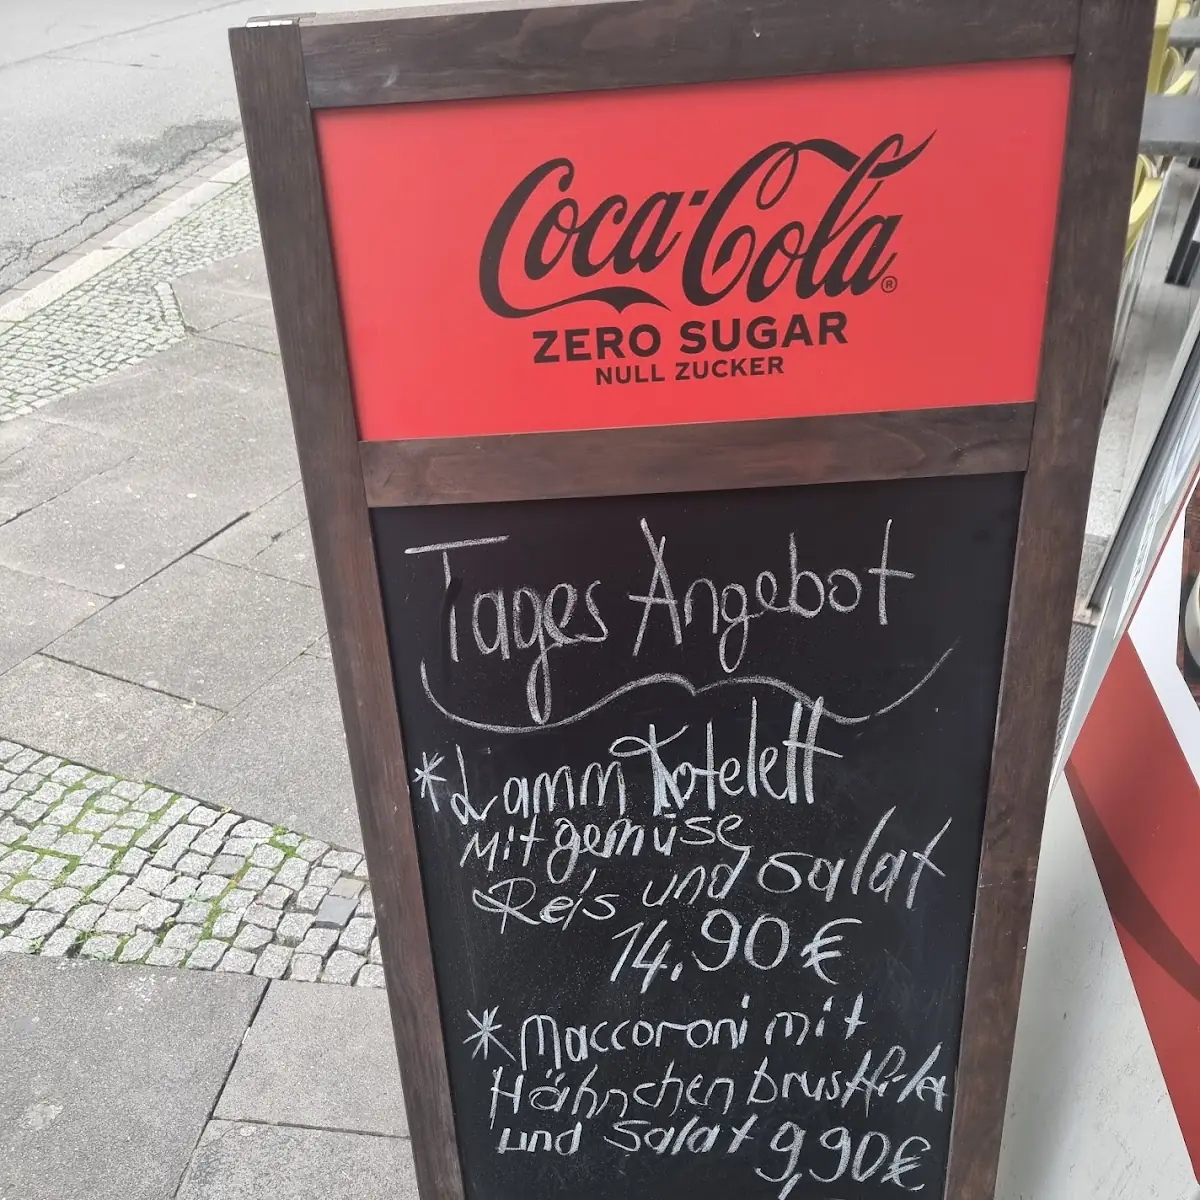 Coca-Cola®
ZERO SUGAR
NULL ZUCKER
Tages Angebot
*Lamm Kotelett
mit gemüse
Reis und salat
14.90€
*Maccoroni mit
Hähnchenbrustfilet
und salat 9,90€